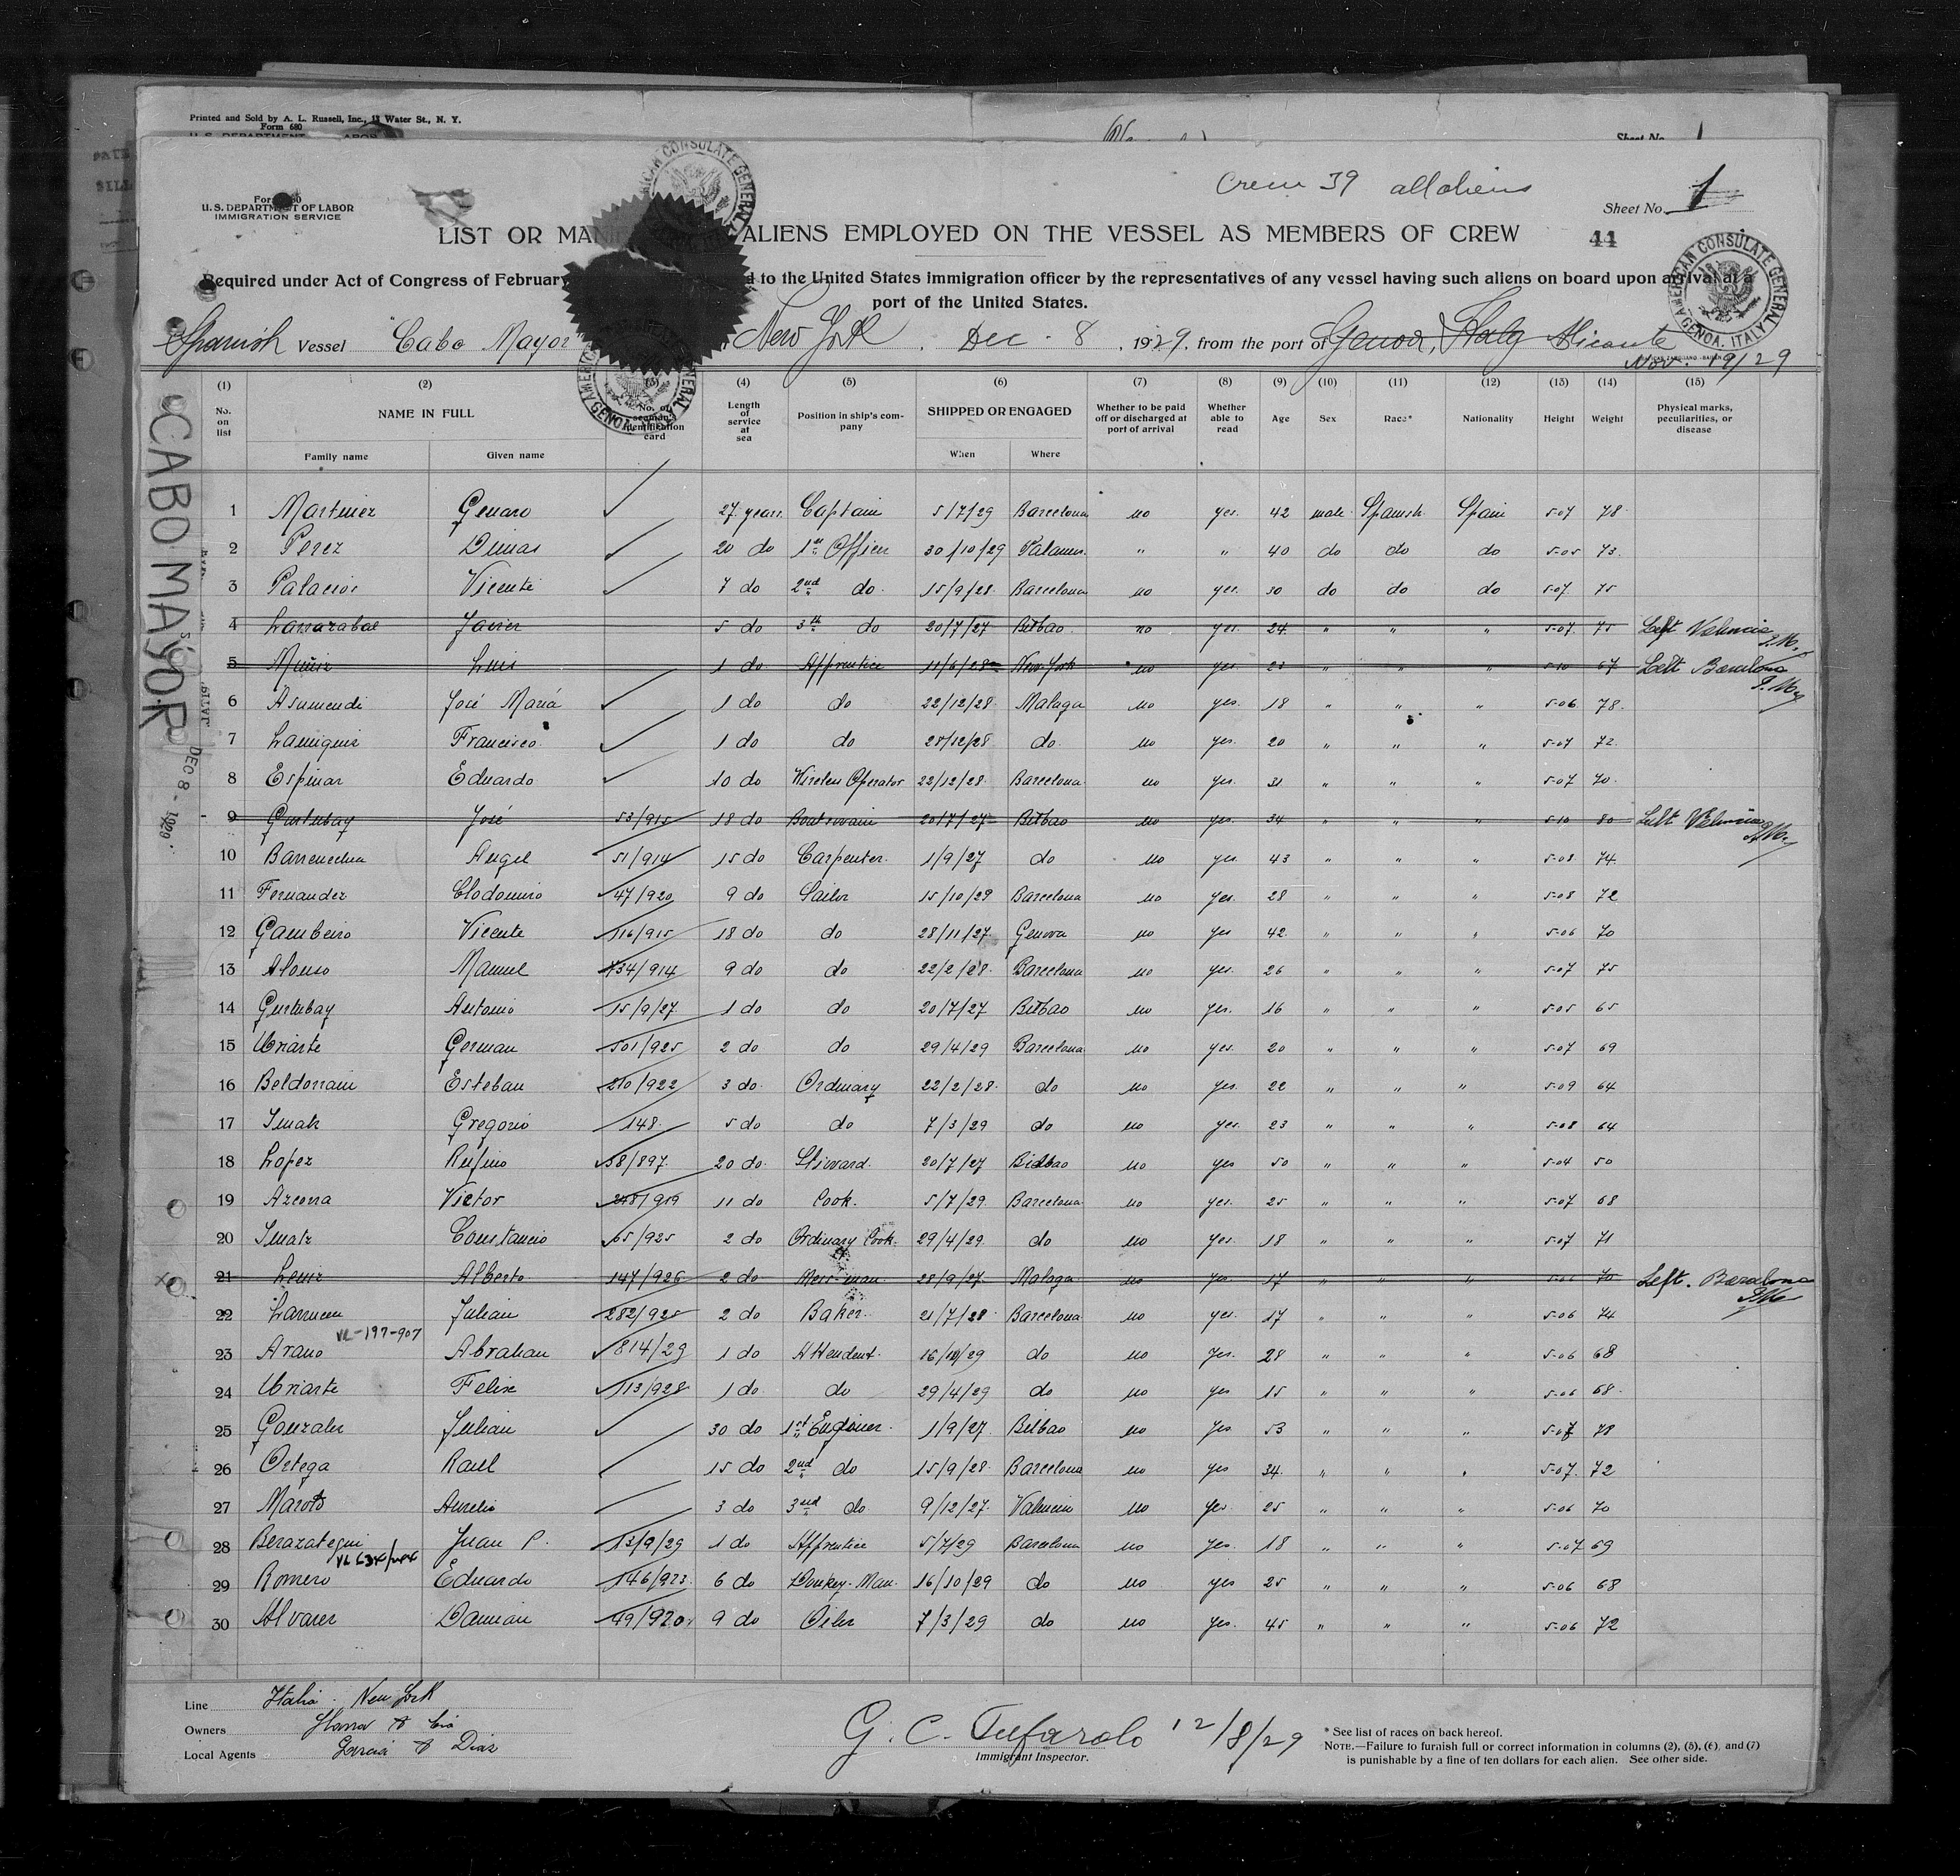 Printed and Sold by A. L. Russell, Inc., 13 Water St., N. Y.
Form 680
Sheet No. 1
Crew 39 all aliens
U. S. DEPARTMENT OF LABOR
IMMIGRATION SERVICE
Sheet No. 1
44
AMERICAN CONSULATE GENERAL GENOA, ITALY
LIST OR MAN ALIENS EMPLOYED ON THE VESSEL AS MEMBERS OF CREW
Required under Act of Congress of February d to the United States immigration officer by the representatives of any vessel having such aliens on board upon arrival at a
port of the United States.
Spanish Vessel "Cabo Mayor New York, Dec. 8, 1929, from the port of Genoa, Italy Alicante
Nov. 19/29
CABO MAYOR
DEC 8 - 1929
(1) (2) (3) (4) (5) (6) (7) (8) (9) (10) (11) (12) (13) (14) (15)
No. on list NAME IN FULL No. of seaman's identification card Length of service at sea Position in ship's company SHIPPED OR ENGAGED Whether to be paid off or discharged at port of arrival Whether able to read Age Sex Race* Nationality Height Weight Physical marks, peculiarities, or disease
Family name Given name When Where
1 Martinez Genaro 27 years Captain 5/7/29 Barcelona no yes. 42 male Spanish Spain 5-07 78
2 Perez Dimas 20 do 1st Officer 30/10/29 Palamos " " 40 do do do 5-05 73
3 Palacios Vicente 7 do 2nd do 15/9/28 Barcelona no yes. 30 do do do 5-07 75
4 Larrazabal Javier 5 do 3th do 20/7/27 Bilbao no yes. 24 " " " 5-07 75 Left Valencia
5 Muñiz Luis 1 do Apprentice 11/6/28 New York no yes. 23 " " " 5-10 67 Left Barcelona
6 Asumendi José María 1 do do 22/12/28 Malaga no yes. 18 " " " 5-06 78
7 Francisco 1 do do 28/12/28 do. no yes. 20 " " " 5-07 72
8 Espinar Eduardo 10 do Wireless Operator 22/12/28 Barcelona no yes. 31 " " " 5-07 70
9 Gurtubay José 53/915 18 do Boatswain 20/7/27 Bilbao no yes. 34 " " " 5-10 80 Left Valencia
10 Barrenechea Angel 51/914 15 do Carpenter 1/9/27 do no yes. 43 " " " 5-08 74
11 Fernandez Clodomiro 47/920 9 do Sailor 15/10/29 Barcelona no yes. 28 " " " 5-08 72
12 Gambeiro Vicente 116/915 18 do do 28/11/27 Genova no yes 42 " " " 5-06 70
13 Alonso Manuel 434/914 9 do do 22/2/28 Barcelona no yes. 26 " " " 5-07 75
14 Gurtubay Antonio 15/9/27 1 do do 20/7/27 Bilbao no yes. 16 " " " 5-05 65
15 Uriarte German 501/925 2 do do 29/4/29 Barcelona no yes. 20 " " " 5-07 69
16 Beldarrain Esteban 210/922 3 do Ordinary 22/2/28 do no yes. 22 " " " 5-09 64
17 Gregorio 148 5 do do 7/3/29 do no yes. 23 " " " 5-08 64
18 Lopez Rufino 58/897 20 do Steward 20/7/27 Bilbao no yes 50 " " " 5-04 50
19 Azcona Victor 248/919 11 do Cook 5/7/29 Barcelona no yes. 25 " " " 5-07 68
20 Constancio 65/925 2 do Ordinary Cook 29/4/29 do no yes. 18 " " " 5-07 71
21 Alberto 147/926 2 do Mess-man 28/9/27 Malaga no yes. 17 " " " 5-06 70 Left. Barcelona
22 Larrucea Julian 282/925 2 do Baker 21/7/28 Barcelona no yes. 17 " " " 5-06 74
VL-197-907
23 Arano Abrahan 814/29 1 do Attendent 16/10/29 do no yes. 28 " " " 5-06 68
24 Uriarte Felix 113/928 1 do do 29/4/29 do no yes 15 " " " 5-06 68
25 Gonzalez Julian 30 do 1st Engineer 1/9/27 Bilbao no yes 53 " " " 5-07 78
26 Ortega Raul 15 do 2nd do 15/9/28 Barcelona no yes 34 " " " 5-07 72
27 Maroto Aurelio 3 do 3nd do 9/12/27 Valencia no yes 25 " " " 5-06 70
28 Berazategui Juan P. 13/9/29 1 do Apprentice 5/7/29 Barcelona no yes. 18 " " " 5-07 69
29 Romero Eduardo 146/923 6 do Donkey-Man 16/10/29 do no yes 25 " " " 5-06 68
30 Alvarez Damian 49/920 9 do Oiler 7/3/29 do no yes. 45 " " " 5-06 72
Line Italia - New York
Owners Ybarra & Cia
Local Agents Garcia & Diaz
G. C. Tufarolo 12/8/29
Immigrant Inspector.
* See list of races on back hereof.
NOTE.—Failure to furnish full or correct information in columns (2), (5), (6), and (7)
is punishable by a fine of ten dollars for each alien. See other side.